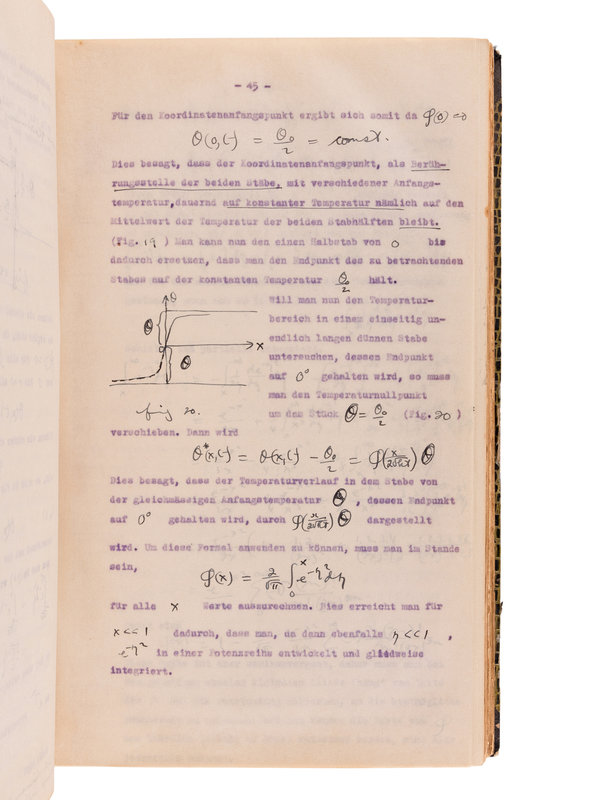 - 45 -
Für den Koordinatenanfangspunkt ergibt sich somit da φ(0) = 0
Θ(0,t) = Θ₀/2 = const.
Dies besagt, dass der Koordinatenanfangspunkt, als Berüh-
rungsstelle der beiden Stäbe, mit verschiedener Anfangs-
temperatur, dauernd auf konstanter Temperatur nämlich auf den
Mittelwert der Temperatur der beiden Stabhälften bleibt.
(Fig. 19 ) Man kann nun den einen Halbstab von 0 bis
dadurch ersetzen, dass man den Endpunkt des zu betrachtenden
Stabes auf der konstanten Temperatur Θ₀/2 hält.
Will man nun den Temperatur-
bereich in einem einseitig un-
endlich langen dünnen Stabe
untersuchen, dessen Endpunkt
auf 0° gehalten wird, so muss
man den Temperaturnullpunkt
um das Stück Θ = Θ₀/2 (Fig. 20 )
Θ
Θ
x
Θ
fig 20.
verschieben. Dann wird
Θ*(x,t) = Θ(x,t) − Θ₀/2 = φ(x/2√a²t) Θ
Dies besagt, dass der Temperaturverlauf in dem Stabe von
der gleichmässigen Anfangstemperatur Θ , dessen Endpunkt
auf 0° gehalten wird, durch φ(x/2√a²t) Θ dargestellt
wird. Um diese Formel anwenden zu können, muss man im Stande
sein,
φ(x) = 2/√π ∫₀ˣ e^−η² dη
für alle x Werte auszurechnen. Dies erreicht man für
x << 1 dadurch, dass man, da dann ebenfalls η << 1 ,
e^−η² in einer Potenzreihe entwickelt und gliedweise
integriert.